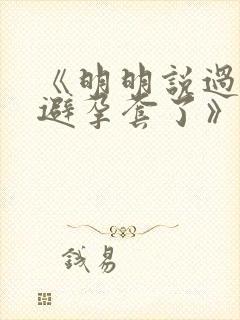 《明明說過
避孕套了》
易